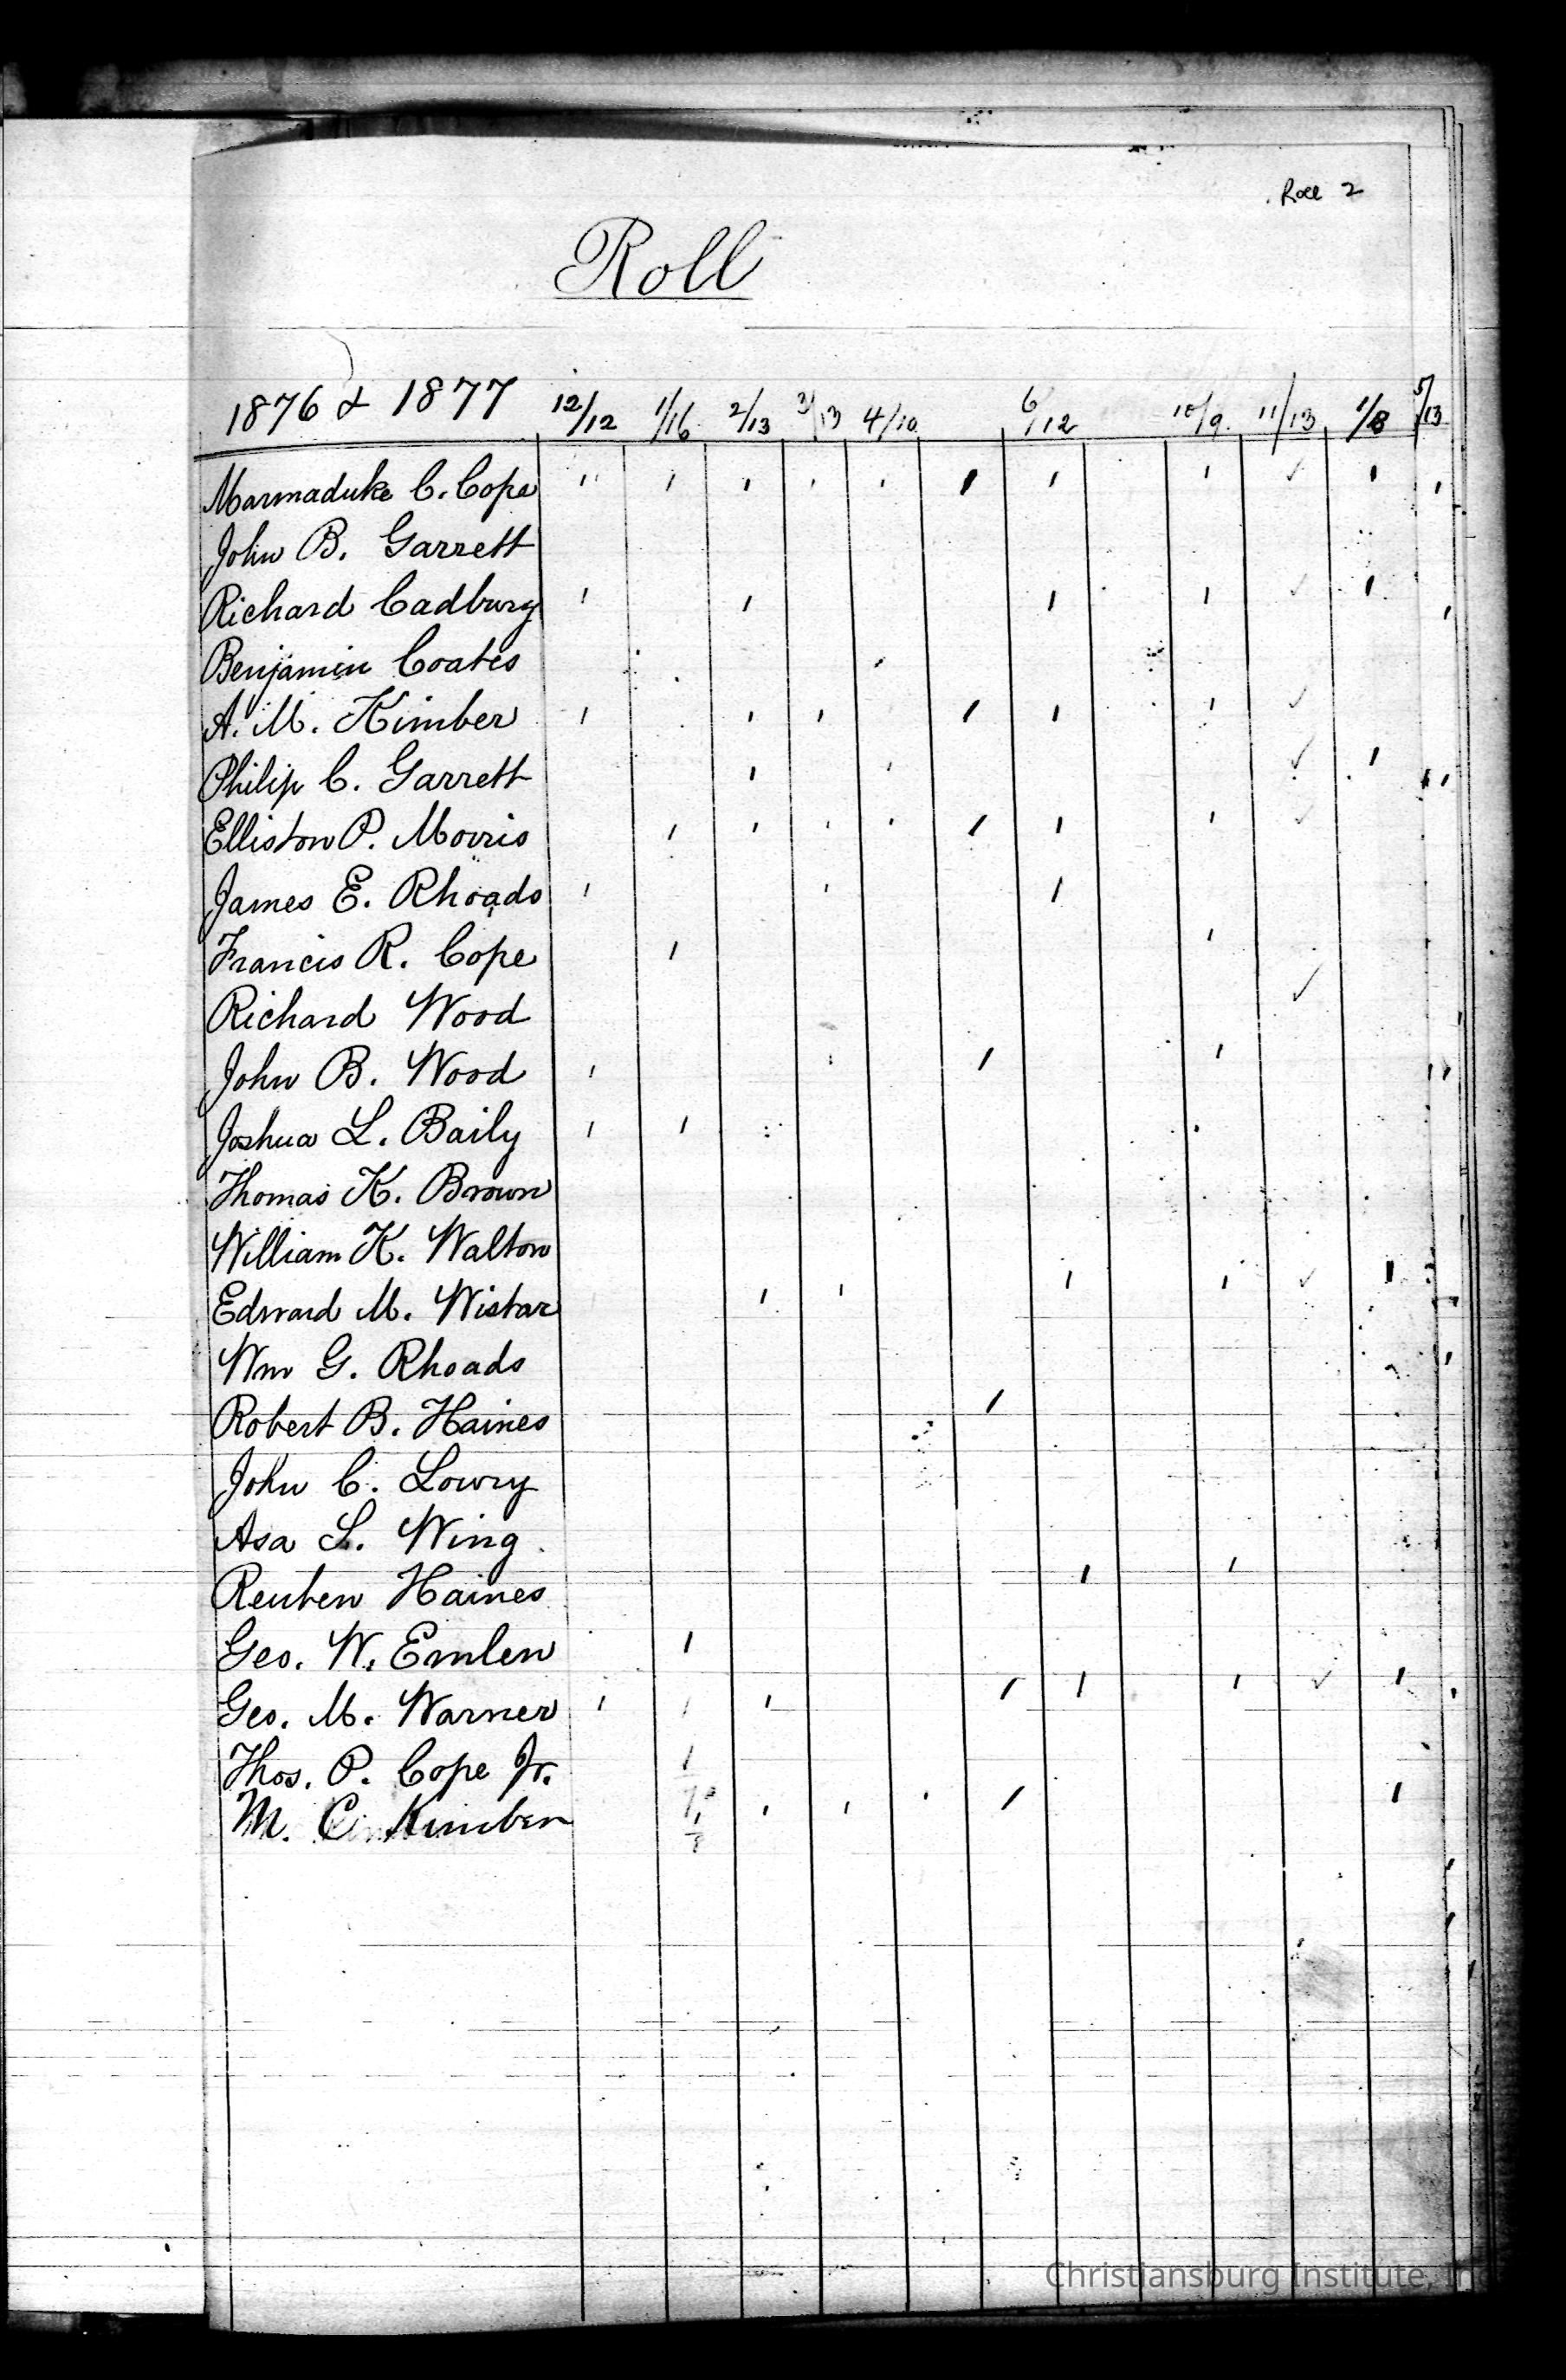 Roll 2
Roll
1876 & 1877 12/12 1/16 2/13 3/13 4/10 6/12 10/9 11/13 1/8 5/13
Marmaduke C. Cope
John B. Garrett
Richard Cadbury
Benjamin Coates
A. M. Kimber
Philip C. Garrett
Elliston P. Morris
James E. Rhoads
Francis R. Cope
Richard Wood
John B. Wood
Joshua L. Baily
Thomas K. Brown
William K. Walton
Edward M. Wistar
Wm G. Rhoads
Robert B. Haines
John C. Lowry
Asa S. Wing
Reuben Haines
Geo. W. Emlen
Geo. M. Warner
Thos. P. Cope Jr.
M. C. Kimber
Christiansburg Institute,